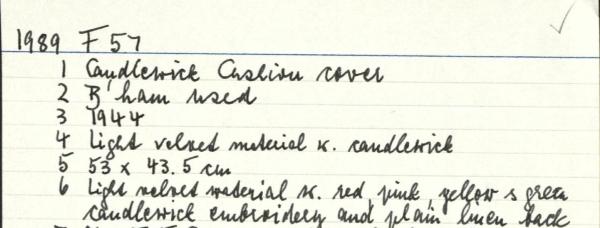 1989 F 57
1 Candlewick Cushion cover
2 B'ham used
3 1944
4 Light velvet material w. candlewick
5 53 x 43.5 cm
6 Light velvet material w. red, pink, yellow & green
candlewick embroidery and plain linen back